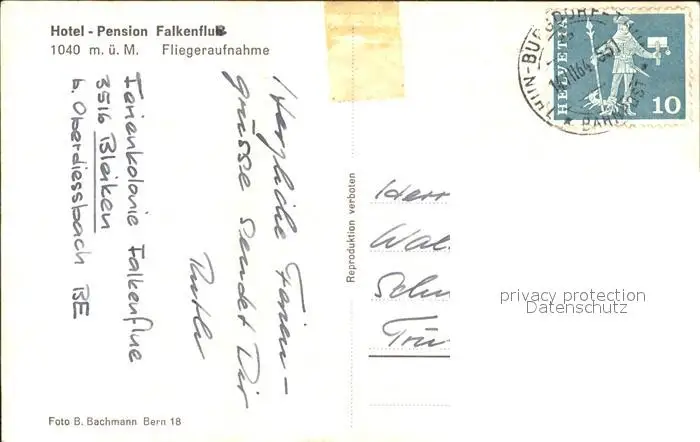 Hotel - Pension Falkenfluh
1040 m. ü. M. Fliegeraufnahme
Ferienkolonie Falkenflue
3516 Bleiken
b. Oberdiessbach BE
Herzliche Ferien-
grüsse sendet Dir
Reproduktion verboten
HELVETIA
10
THUN-BURGDORF
BAHNPOST
Herr
Wal
Schn
privacy protection
Datenschutz
Foto B. Bachmann Bern 18